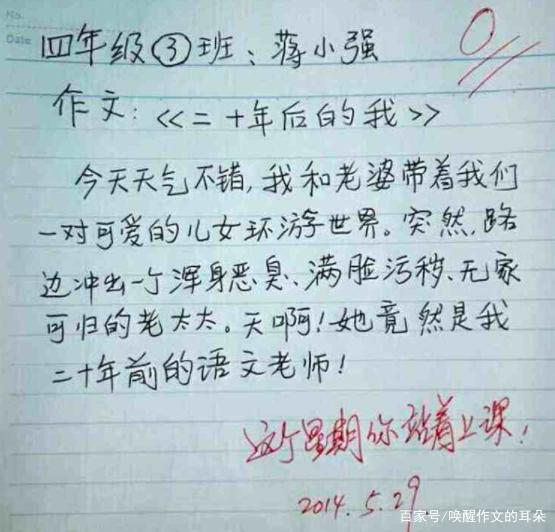 No.
Date
四年级③班：蒋小强
0
作文：《二十年后的我》
今天天气不错，我和老婆带着我们
一对可爱的儿女环游世界。突然，路
边冲出一个浑身恶臭、满脸污秽、无家
可归的老太太。天啊！她竟然是我
二十年前的语文老师！
这个星期你站着上课！
2014.5.29
百家号/唤醒作文的耳朵